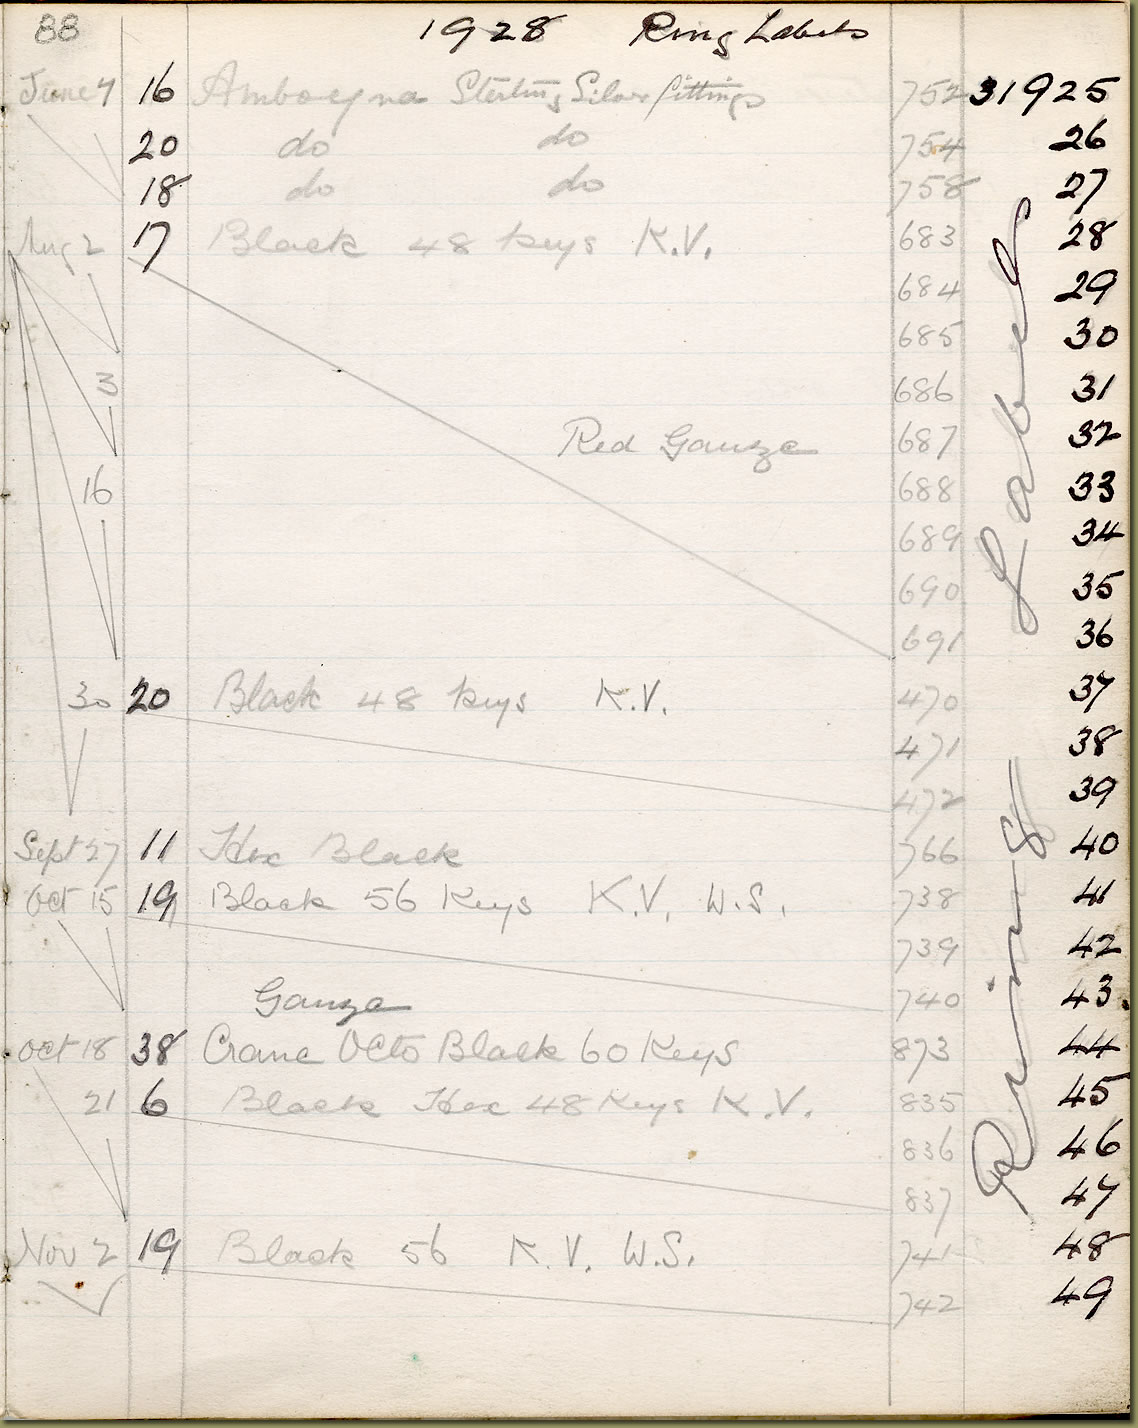 88 1928 Ring Labels
June 7 16 Amboyna Sterling Silver fittings 752 31925
20 do do 754 26
18 do do 758 27
Aug 2 17 Black 48 keys K.V. 683 28
684 29
685 30
3 686 31
Red Gauze 687 32
16 688 33
689 34
690 35
691 36
30 20 Black 48 keys K.V. 470 37
471 38
472 39
Sept 27 11 Hex Black 766 40
Oct 15 19 Black 56 Keys K.V. W.S. 738 41
739 42
Gauze 740 43
Oct 18 38 Crane Octo Black 60 Keys 873 44
21 6 Black Hex 48 Keys K.V. 835 45
836 46
837 47
Nov 2 19 Black 56 K.V. W.S. 741 48
742 49
Ring Labels